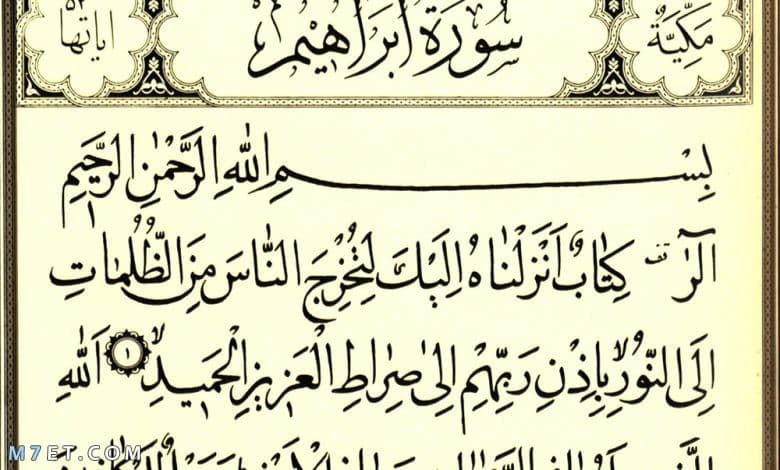 مَكِّيَّةٌ سُورَةُ اَبْرَاهِيمَ اٰيَاتُهَا ٥٢
بِسْمِ اللّٰهِ الرَّحْمٰنِ الرَّحِيمِ
الٓرٰ ۚ كِتَابٌ اَنْزَلْنَاهُ اِلَيْكَ لِتُخْرِجَ النَّاسَ مِنَ الظُّلُمَاتِ
اِلَى النُّورِ بِاِذْنِ رَبِّهِمْ اِلٰى صِرَاطِ الْعَزِيزِ الْحَمِيدِ ۙ ١ اَللّٰهِ
M7ET.COM